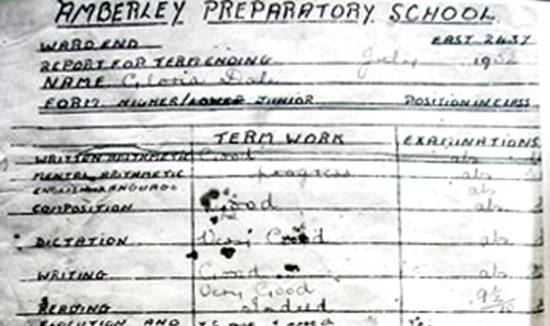 AMBERLEY PREPARATORY SCHOOL
WARD END EAST 2437
REPORT FOR TERM ENDING July 19
NAME Gloria
FORM HIGHER/LOWER JUNIOR POSITION IN CLASS
TERM WORK EXAMINATIONS
WRITTEN ARITHMETIC Good abs
MENTAL ARITHMETIC progress abs
ENGLISH LANGUAGE abs
COMPOSITION Good abs
DICTATION Very Good abs
WRITING Good abs
READING Very Good 9½
AND